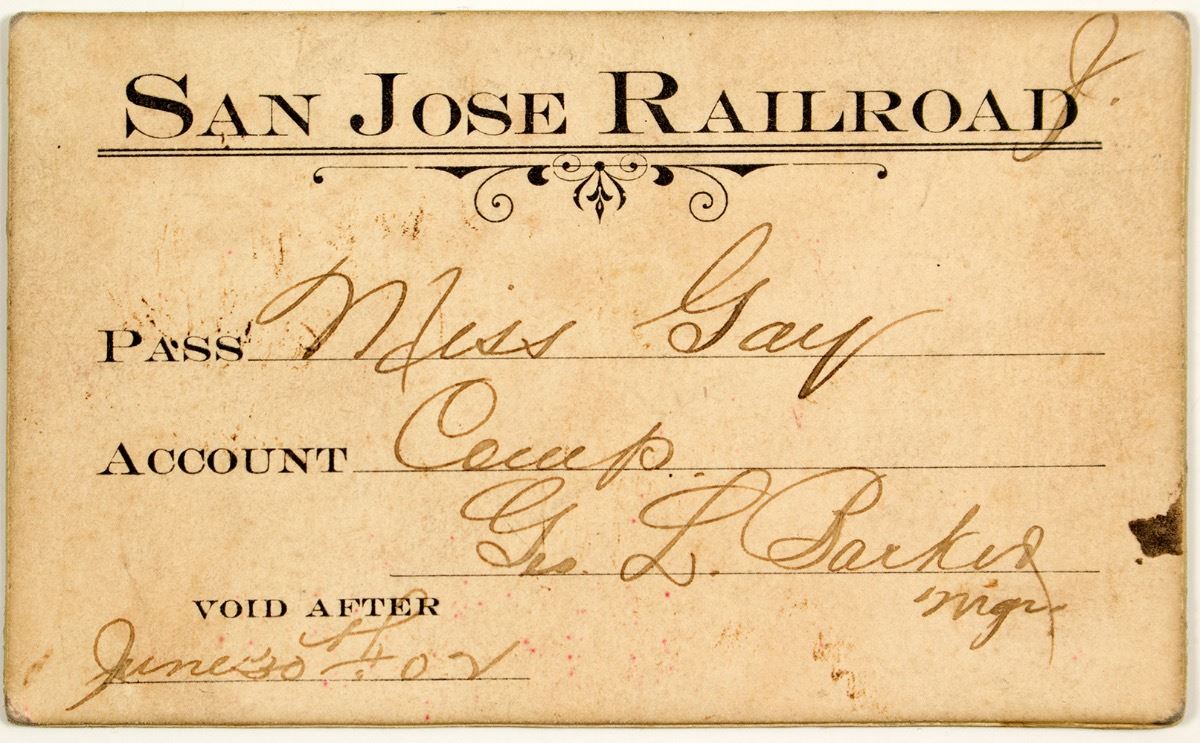 J.
SAN JOSE RAILROAD
PASS Miss Gay
ACCOUNT Comp.
Geo. L. Barker
Mgr
VOID AFTER
June 30th 02